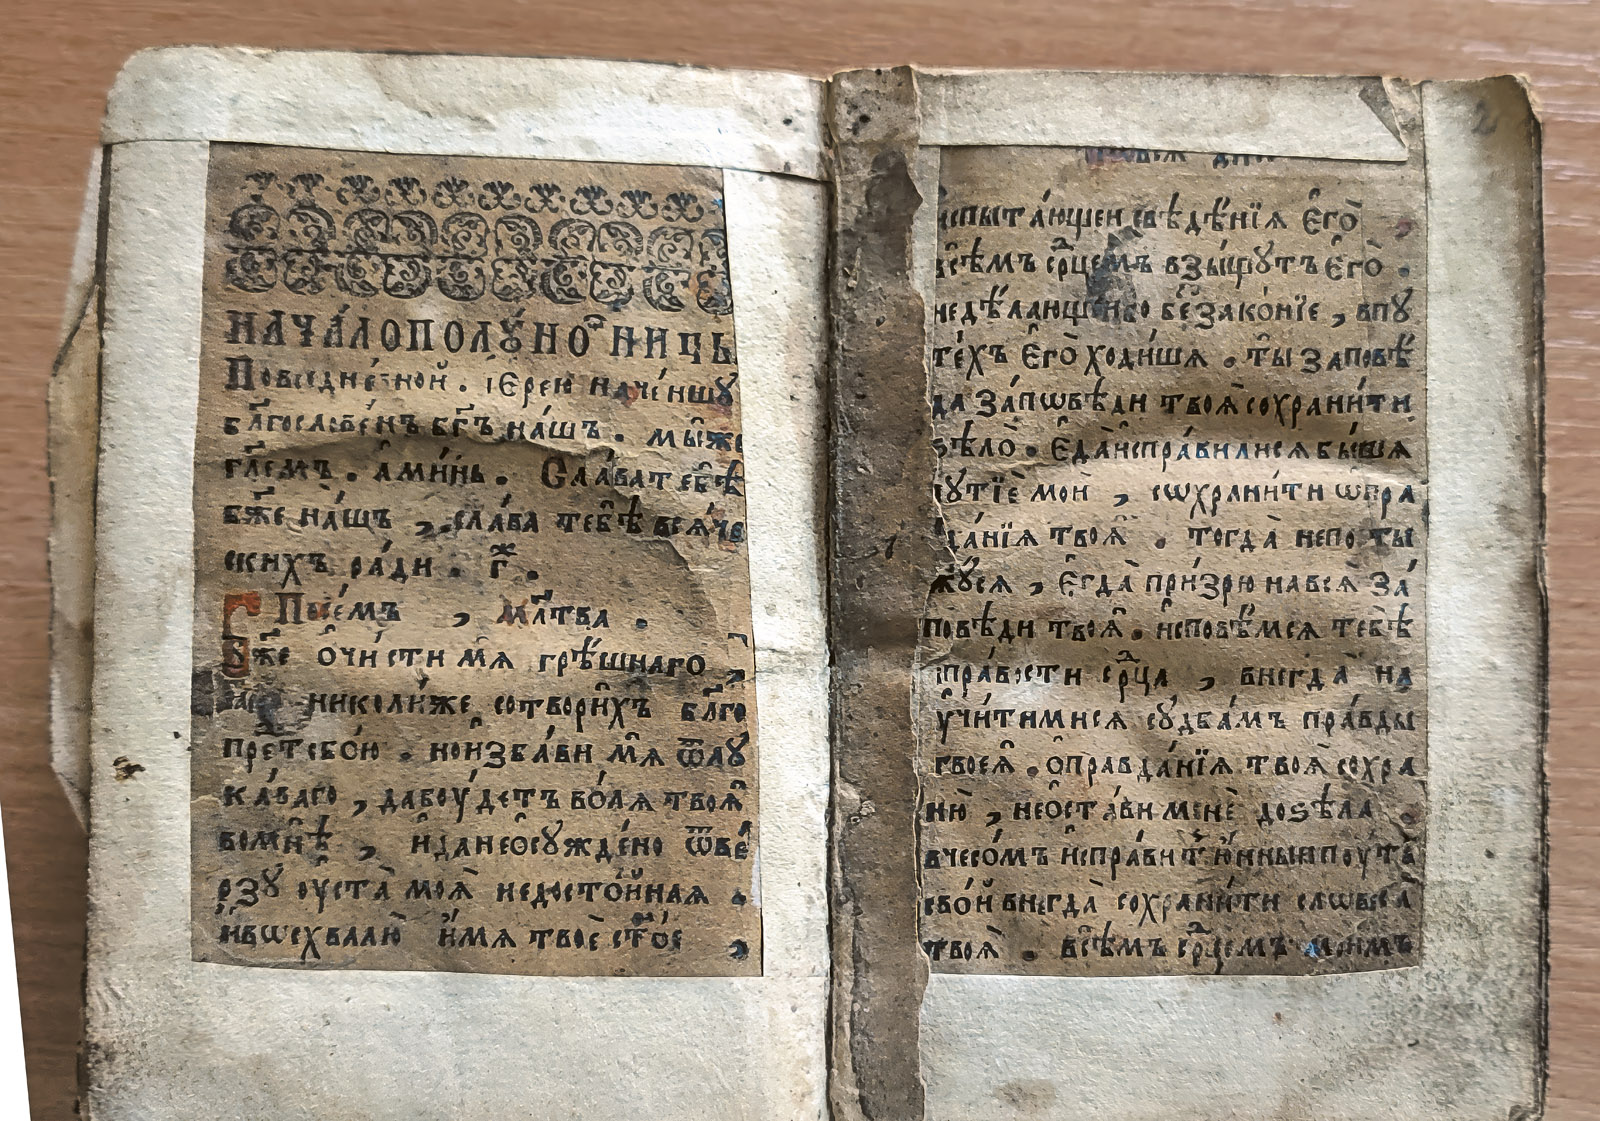 НАЧА́ЛОПОЛꙊ́НО́ЩНИЦЫ
Повседне́вной . і҆Ере́ю наче́ншꙋ
бл҃гослове́нъ бг҃ъ на́шъ . мы́же
гл҃емъ . а҆ми́нь . Сла́ватебѣ̀
бж҃е на́шъ , сла́ва тебѣ̀ вся́че
скихъ ра́ди . г҃ .
Пое́мъ , мл҃тва .
Бж҃е ѻ҆чи́сти мѧ̀ грѣ́шнаго ,
николи́же сотвори́хъ бл҃го
претобо́ю . ноизба́ви мѧ̀ ѿлꙋ
ка́ваго , дабоу́детъ во́лѧ твоѧ̀
вомнѣ̀ , и҆данеѻ҆сꙋжде́но ѿве́
рзꙋ ѹста̀ моѧ̀ недосто́йнаѧ .
и҆восхвалю̀ и҆́мѧ твоѐ ст҃о́е ,
2
испыта́ющеи свѣдѣ́нїѧ Е҆го̀
всѣ́мъ ср҃цемъ взы́щꙋтъ Е҆го̀ .
недѣ́лающеибо беззако́нїе , впꙋ
те́хъ Е҆го̀ ходи́шѧ . ты̀ заповѣ
да за́повѣди твоѧ̀ сохрани́ти
ѕѣло̀ . Е҆даи҆спра́вилисѧ бы́шѧ
пꙋтїѐ мои , сохрани́ти ѡ҆пра
вда́нїѧ твоѧ̀ . тогда̀ непо ты
жꙋсѧ , Е҆гда̀ при́зрю навсѧ̀ за́
повѣди твоѧ̀ . и҆сповѣ́мсѧ тебѣ̀
впра́вости ср҃ца , внегда̀ на
ꙋчи́тимисѧ сꙋдба́мъ пра́вды
твоеѧ̀ . ѻ҆правда́нїѧ твоѧ̀ сохра
ню̀ , неѻ҆ста́ви менѐ доѕѣла̀ .
вчесо́мъ и҆спра́витъ ю҆ныи поу́ть
сво́й внегда̀ сохрани́ти словеса̀
твоѧ̀ . всѣ́мъ ср҃цемъ мои́мъ